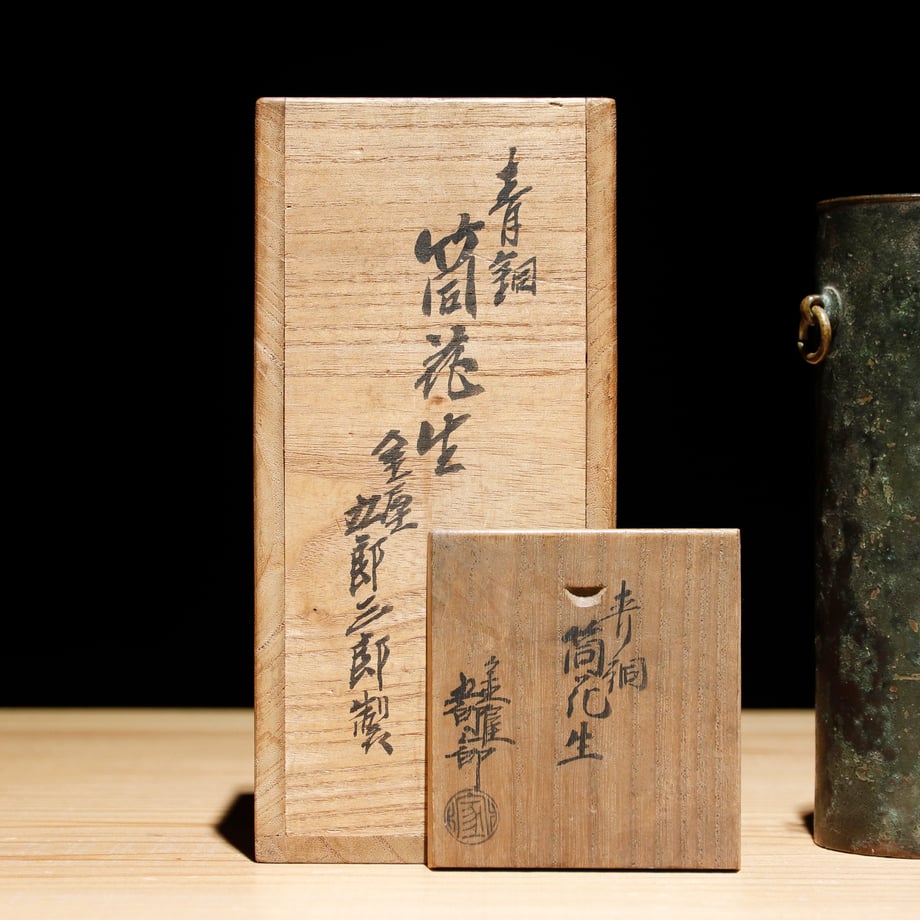 青銅
筒花生
金屋五郎三郎製
青銅
筒花生
金屋